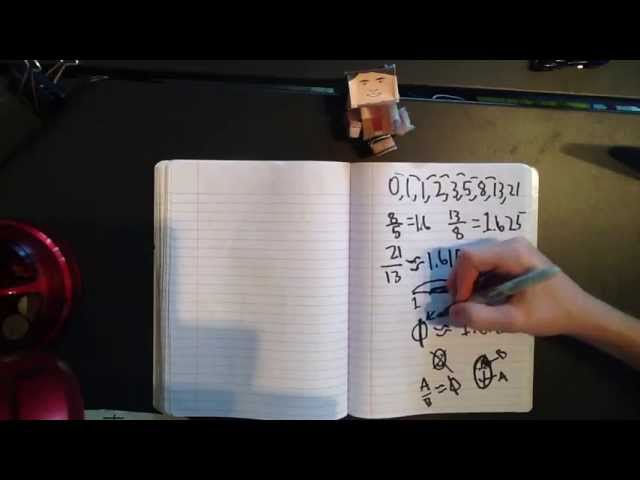 0,1,1,2,3,5,8,13,21
8/5 = 1.6 13/8 = 1.625
21/13 ≈ 1.61
1
ϕ ≈
A
A/B ≈ ϕ